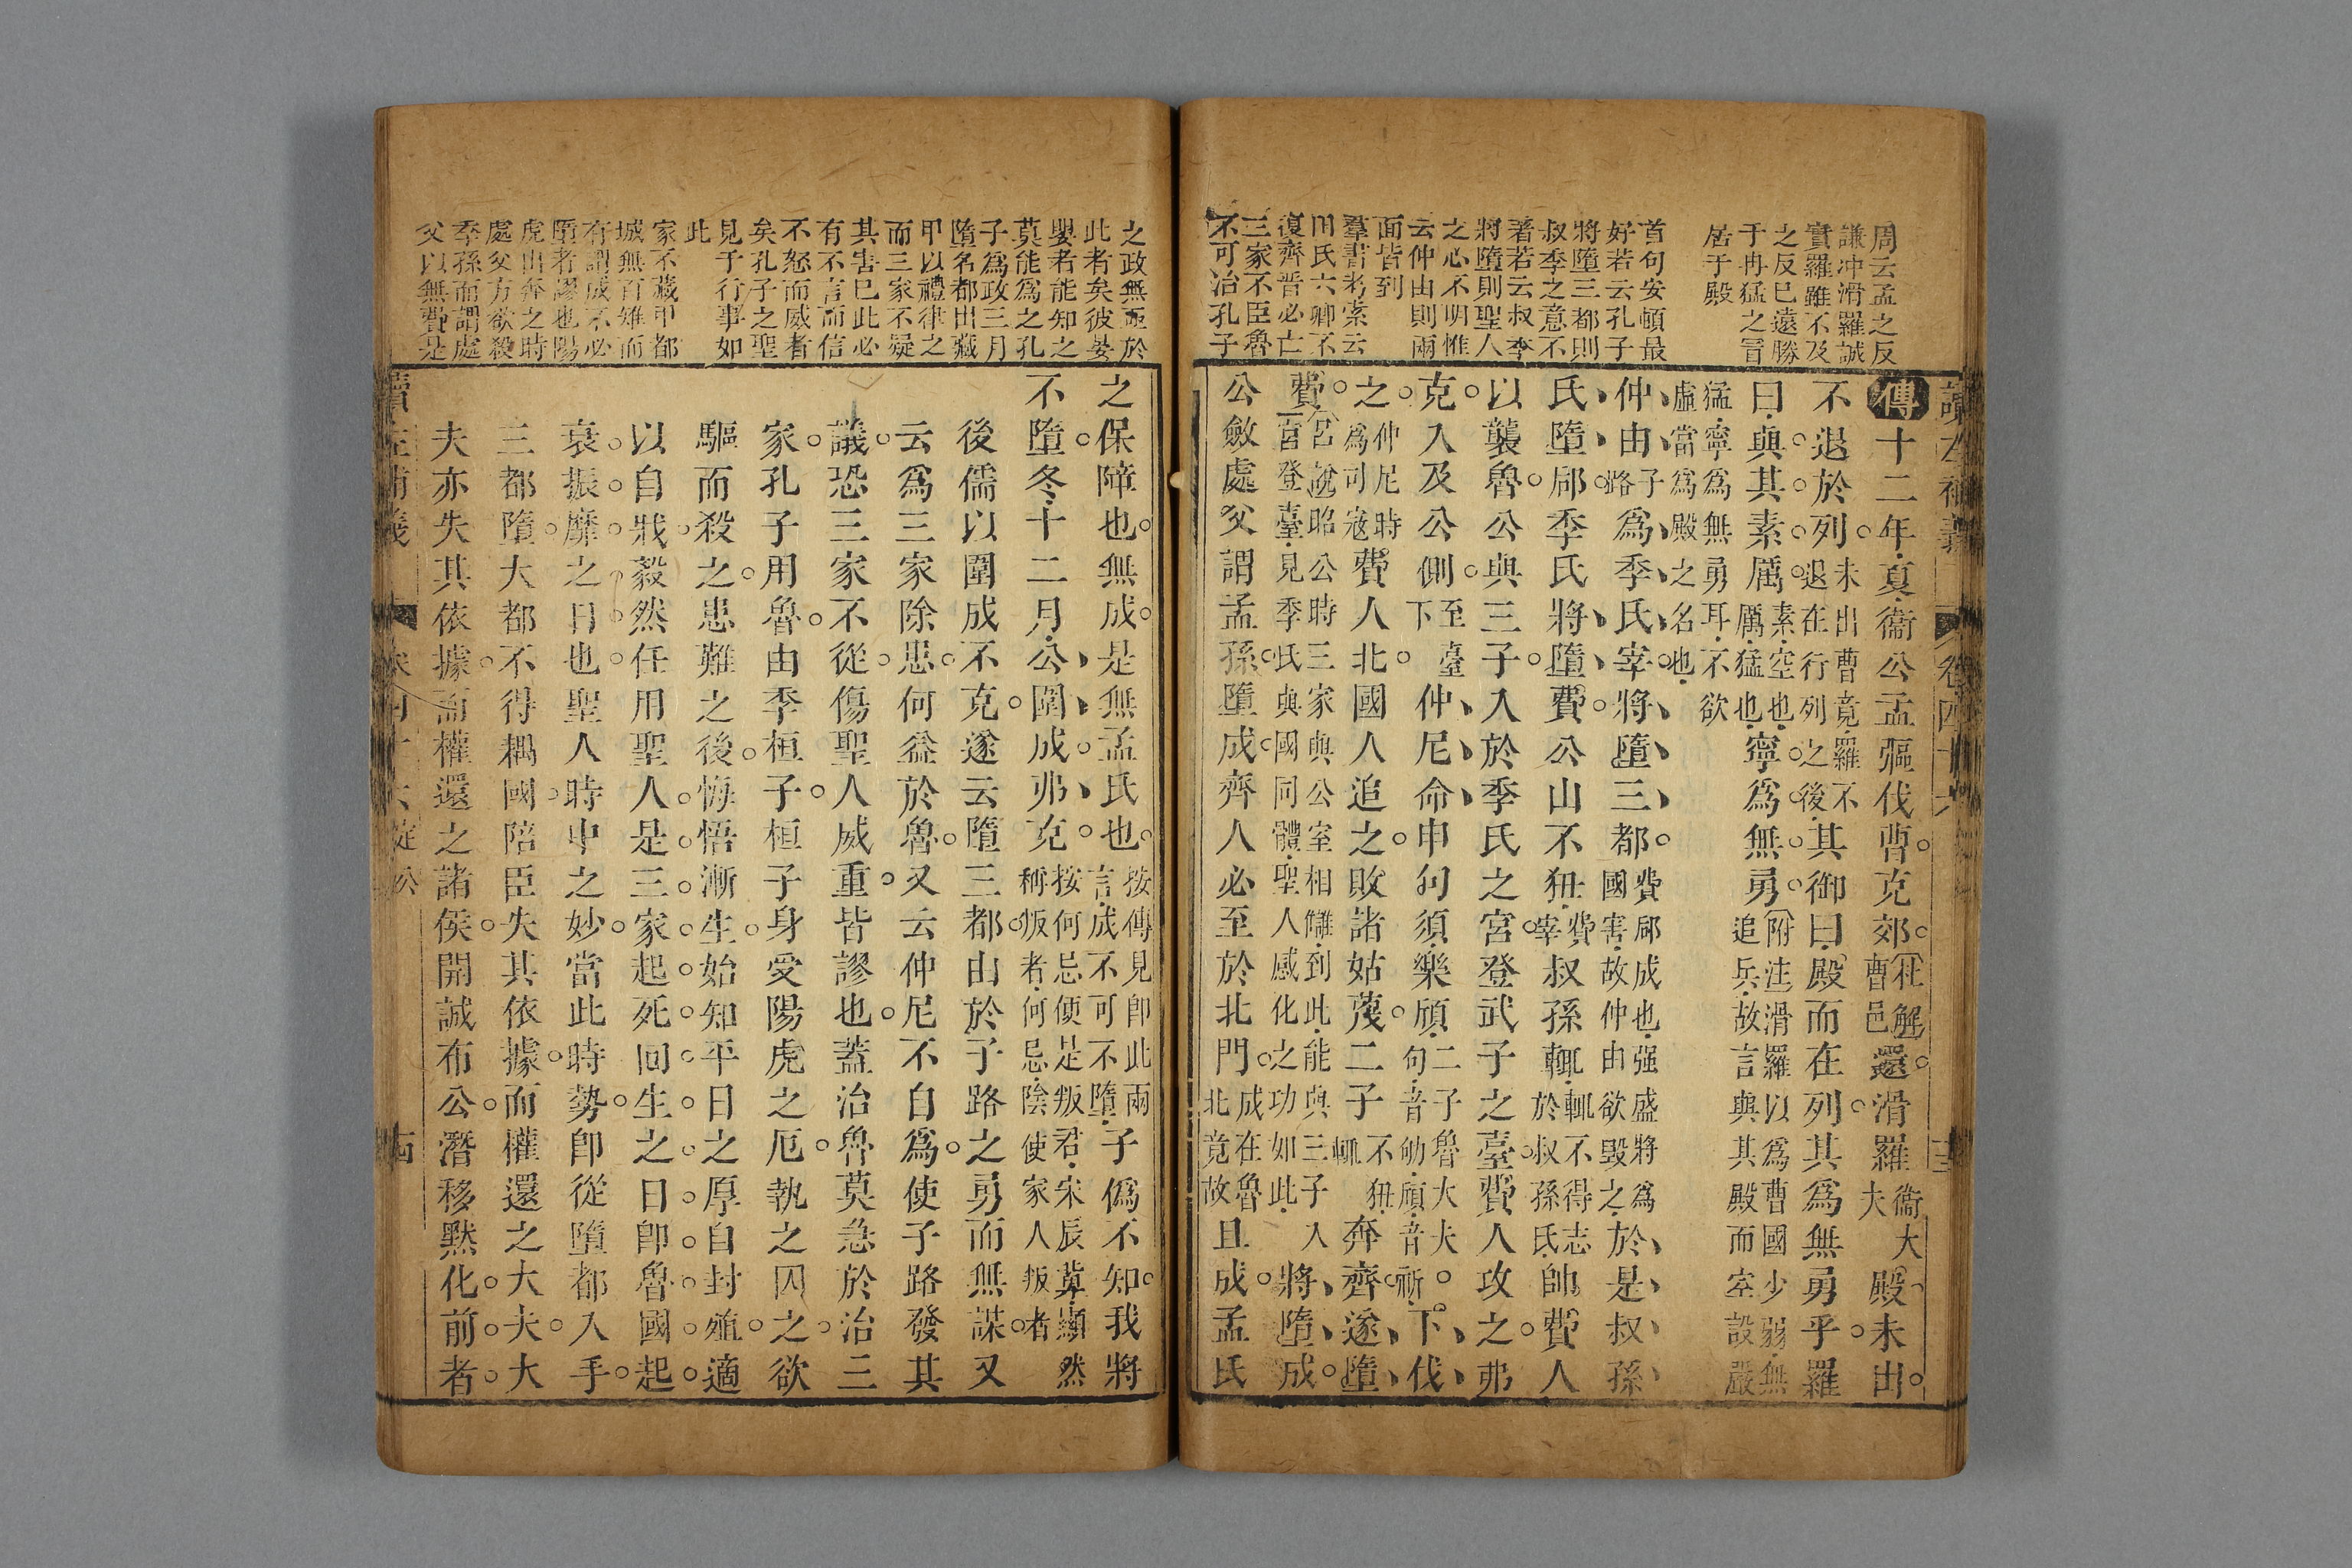 讀左補義
卷四十六
周云孟之反
謙冲滑羅誠
實羅雖不及
之反已遠勝
于冉猛之冒
居于殿
首句安頓最
好若云孔子
將墮三都則
叔季之意不
著若云叔季
將墮則聖人
之必不明惟
云仲由則兩
面皆到
羣書考索云
田氏六卿不
復齊晉必亡
三家不臣魯
不可治孔子
傳十二年夏衞公孟彄伐曹克郊杜解曹邑還滑羅衞大夫殿未出
不退於列未出曹竟羅不退在行列之後其御曰殿而在列其爲無勇乎羅
曰與其素厲素空也厲猛也寧爲無勇附注滑羅以爲曹國少弱無追兵故言與其殿而空設嚴
猛寧爲無勇耳不欲虛當爲殿之名也
仲由子路爲季氏宰將墮三都費郈成也强盛將爲國害故仲由欲毀之於是叔孫
氏墮郈季氏將墮費公山不狃費宰叔孫輒輒不得志於叔孫氏帥費人
以襲魯公與三子入於季氏之宮登武子之臺費人攻之弗
克入及公側至臺下仲尼命申句須樂頎二子魯大夫句音劬頎音祈下伐
之仲尼時爲司寇費人北國人追之敗諸姑蔑二子不狃輒奔齊遂墮
費公宮說昭公時三家與公室相讎到此能與三子入一宮登臺見季氏與國同體聖人感化之功如此將墮成
公斂處父謂孟孫墮成齊人必至於北門成在魯北竟故且成孟氏
之政無亟於
此者矣彼晏
嬰者能知之
莫能爲之孔
子爲政三月
墮名都出藏
甲以禮律之
而三家不疑
其害已此必
有不言而信
不怒而威者
矣孔子之聖
見于行事如
此
家不藏甲都
城無百雉而
有謂成不必
墮者謬也陽
虎出奔之時
處父方欲殺
季孫而謂處
父以無費是
之保障也無成是無孟氏也按傳見卽此兩言成不可不墮子僞不知我將
不墮冬十二月公圍成弗克按何忌便是叛君宋辰冀顯然稱叛者何忌陰使家人叛者
後儒以圍成不克遂云墮三都由於子路之勇而無謀又
云爲三家除患何益於魯又云仲尼不自爲使子路發其
議恐三家不從傷聖人威重皆謬也蓋治魯莫急於治三
家孔子用魯由季桓子桓子身受陽虎之厄執之囚之欲
驅而殺之患難之後悔悟漸生始知平日之厚自封殖適
以自戕毅然任用聖人是三家起死回生之日卽魯國起
衰振靡之日也聖人時中之妙當此時勢卽從墮都入手
三都墮大都不得耦國陪臣失其依據而權還之大夫大
夫亦失其依據而權還之諸侯開誠布公潛移默化前者
讀左補義
卷四十六定公